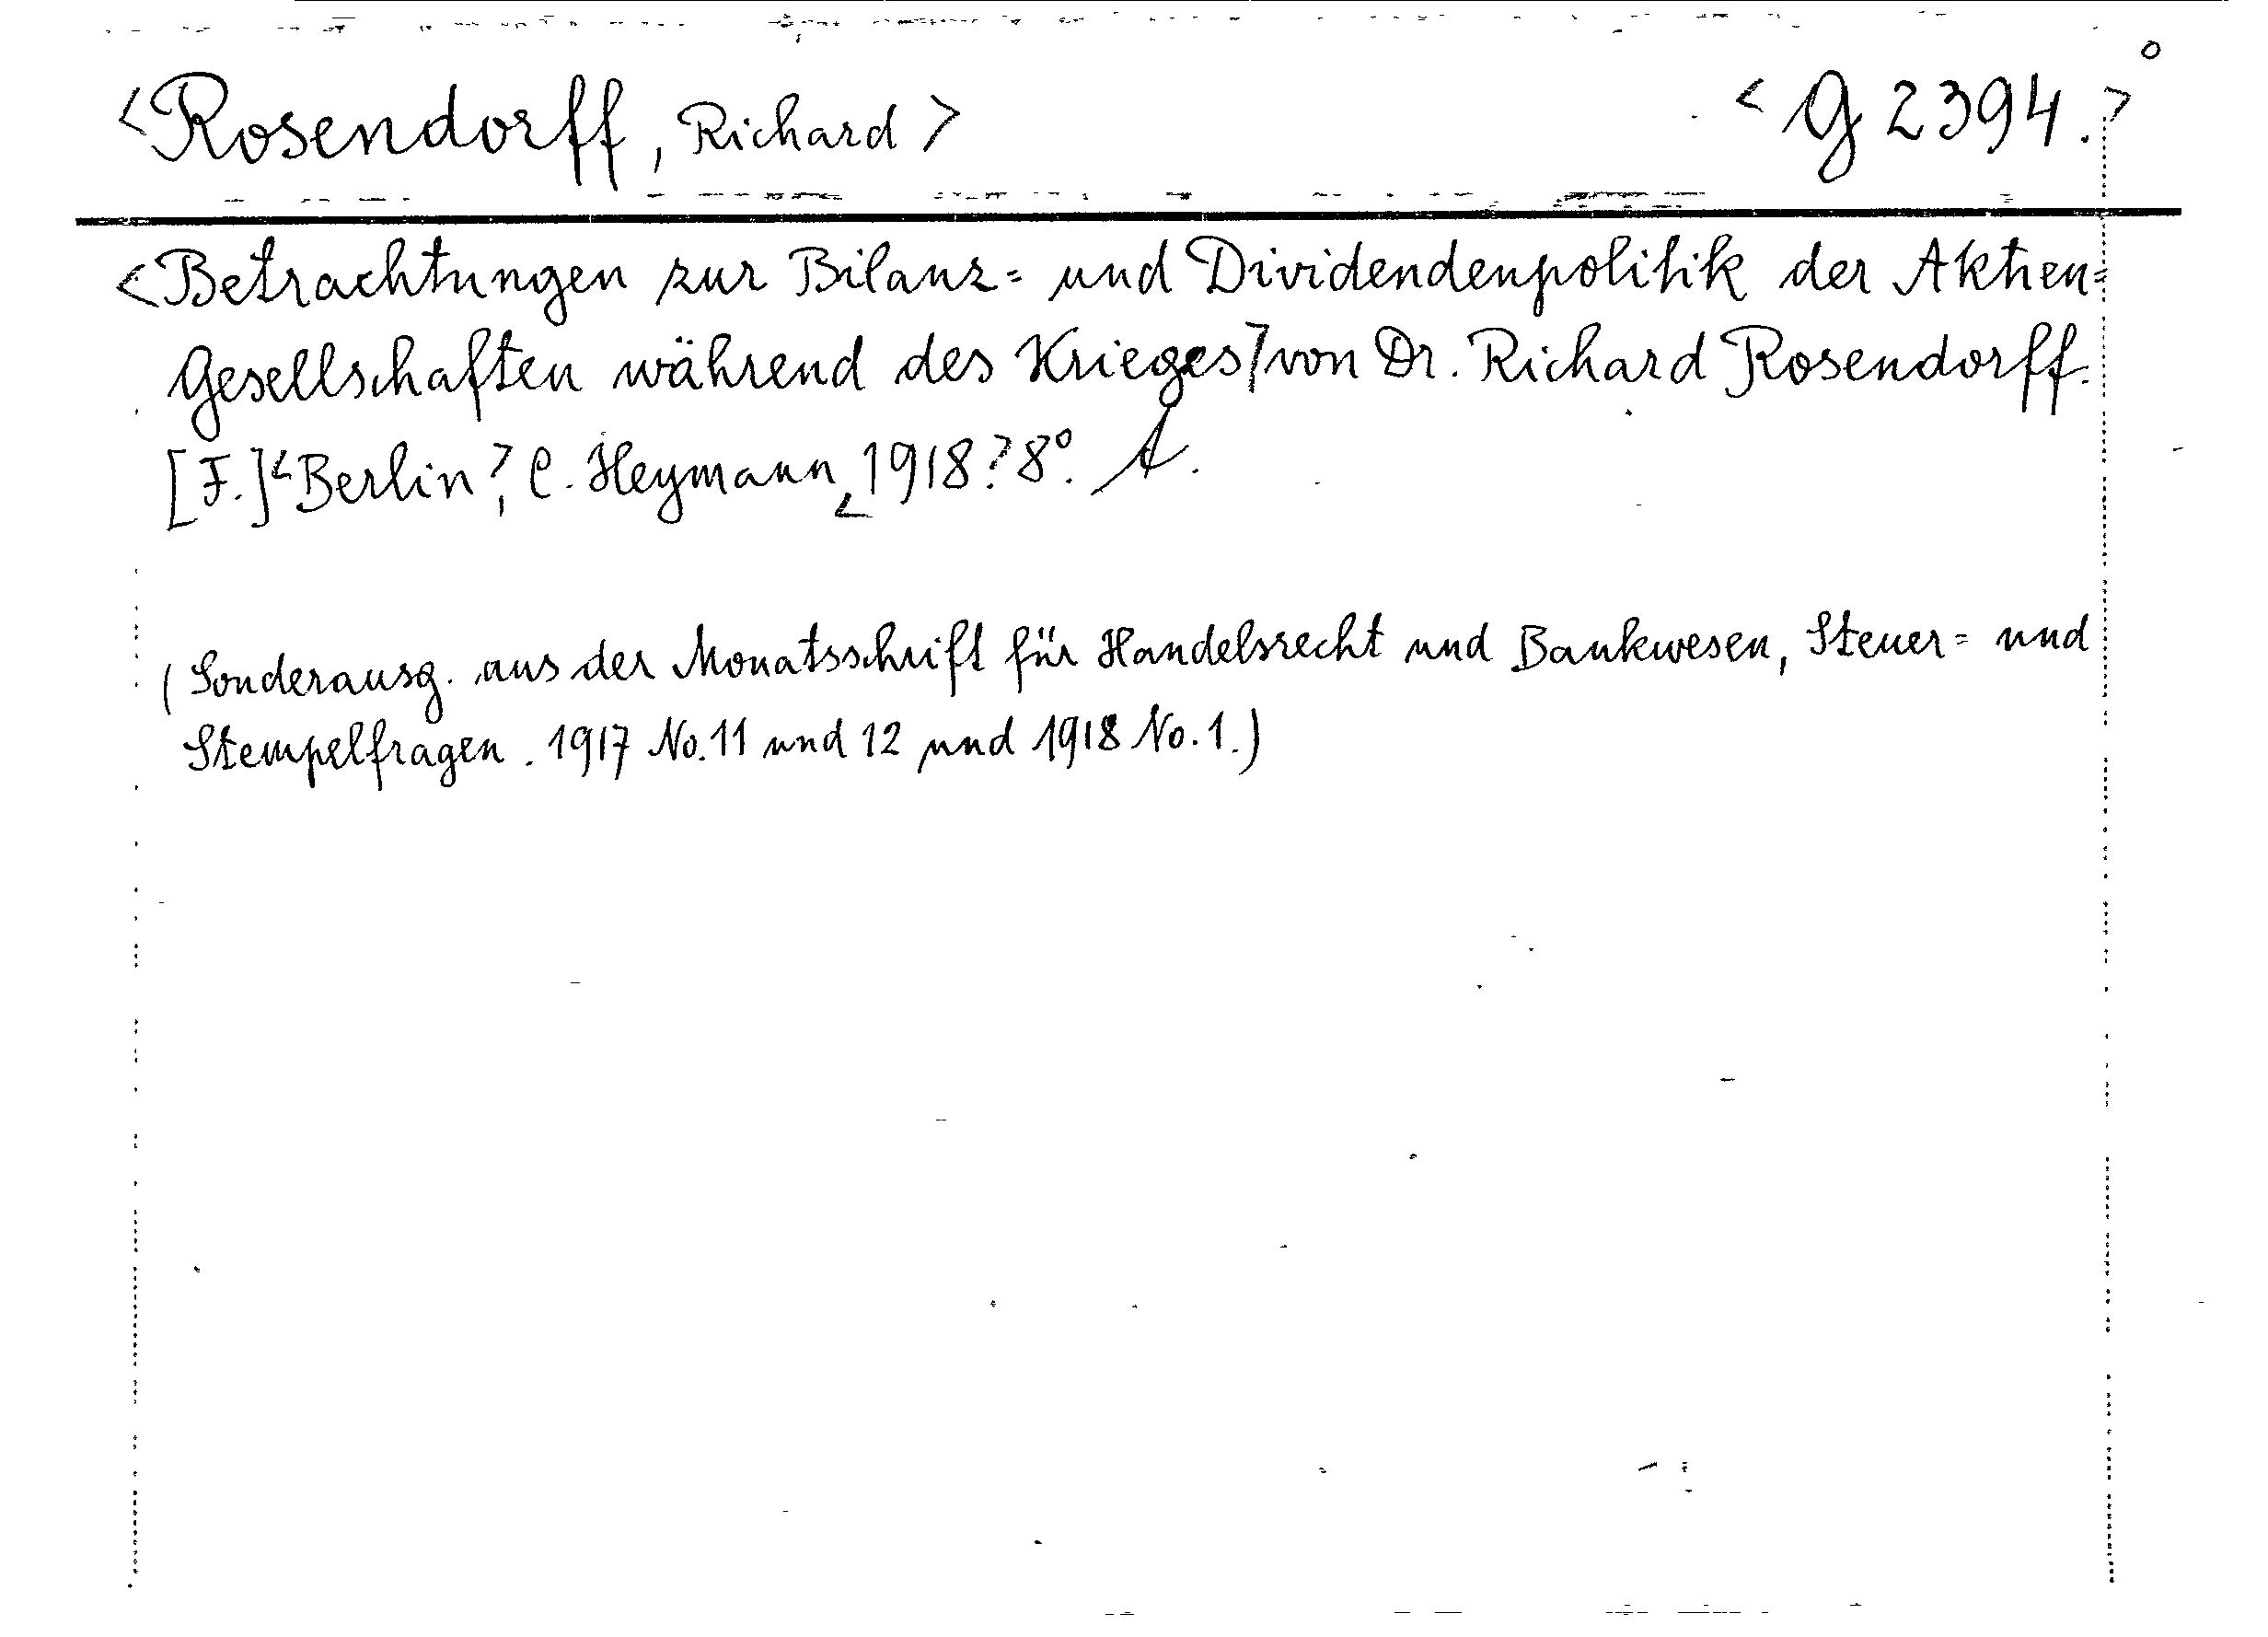 <Rosendorff, Richard> <G 2394.>
<Betrachtungen zur Bilanz= und Dividendenpolitik der Aktien=
Gesellschaften während des Krieges> von Dr. Richard Rosendorff.
[F.] <Berlin>, C. Heymann, <1918> 8°. A.
(Sonderausg. aus der Monatsschrift für Handelsrecht und Bankwesen, Steuer= und
Stempelfragen. 1917 No. 11 und 12 und 1918 No. 1.)